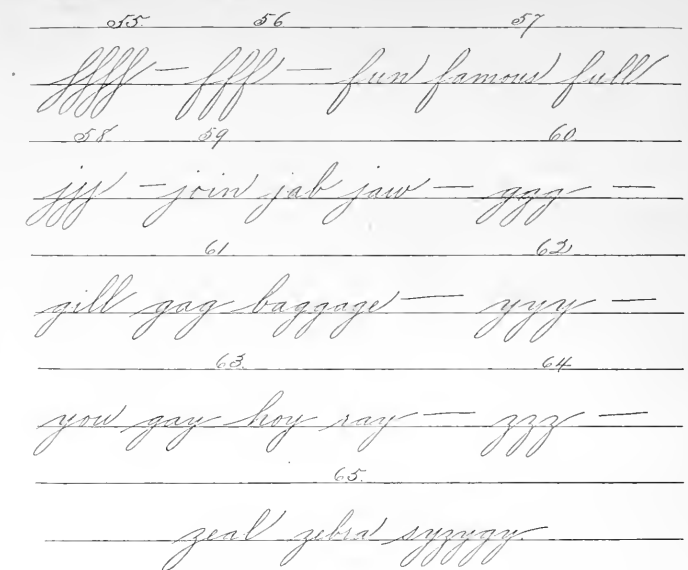 55. 56 57
ffff — fff — fun famous full
58. 59 60
jjj — join jab jaw — ggg —
61 62
gill gag baggage — yyy —
63. 64
you gay hoy ray — zzz —
65.
zeal zebra syzygy.